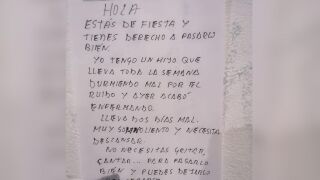 HOLA
ESTÁS DE FIESTA Y
TIENES DERECHO A PASARLO
BIEN.
YO TENGO UN HIJO QUE
LLEVA TODA LA SEMANA
DURMIENDO MAL POR EL
RUIDO Y AYER ACABÓ
ENFERMANDO.
LLEVO DOS DÍAS MAL.
MUY SOMNOLIENTO Y NECESITA
DESCANSAR.
NO NECESITAS GRITAR,
CANTAR... PARA PASARLO
BIEN Y PUEDES